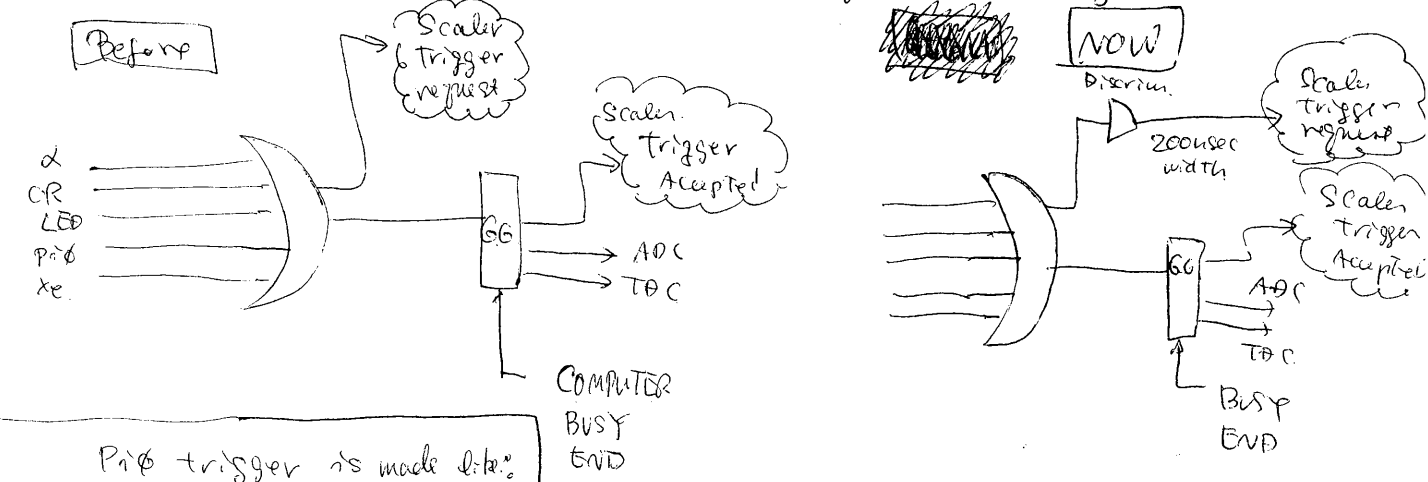 Before
Scaler
Trigger
request
Scaler
Trigger
Accepted
α
CR
LED
Piø
Xe
GG
ADC
TDC
COMPUTER
BUSY
END
Piø trigger is made like:
NOW
Discrim.
200nsec
width
Scaler
Trigger
request
Scaler
Trigger
Accepted
GG
ADC
TDC
BUSY
END